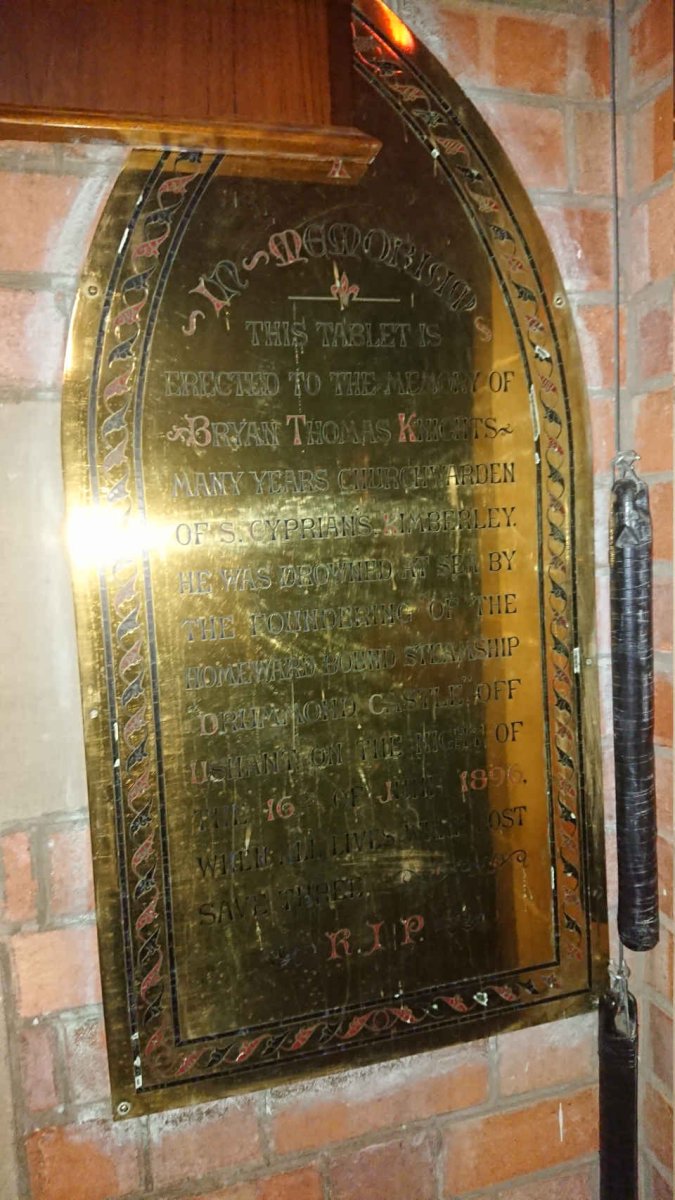 A
IN MEMORIAM
THIS TABLET IS
ERECTED TO THE MEMORY OF
BRYAN THOMAS KNIGHTS
MANY YEARS CHURCHWARDEN
OF S. CYPRIAN'S, KIMBERLEY.
HE WAS DROWNED AT SEA BY
THE FOUNDERING OF THE
HOMEWARD BOUND STEAMSHIP
"DRUMMOND CASTLE" OFF
USHANT ON THE NIGHT OF
THE 16TH OF JUNE 1896,
WHEN ALL LIVES WERE LOST
SAVE THREE.
R.I.P.